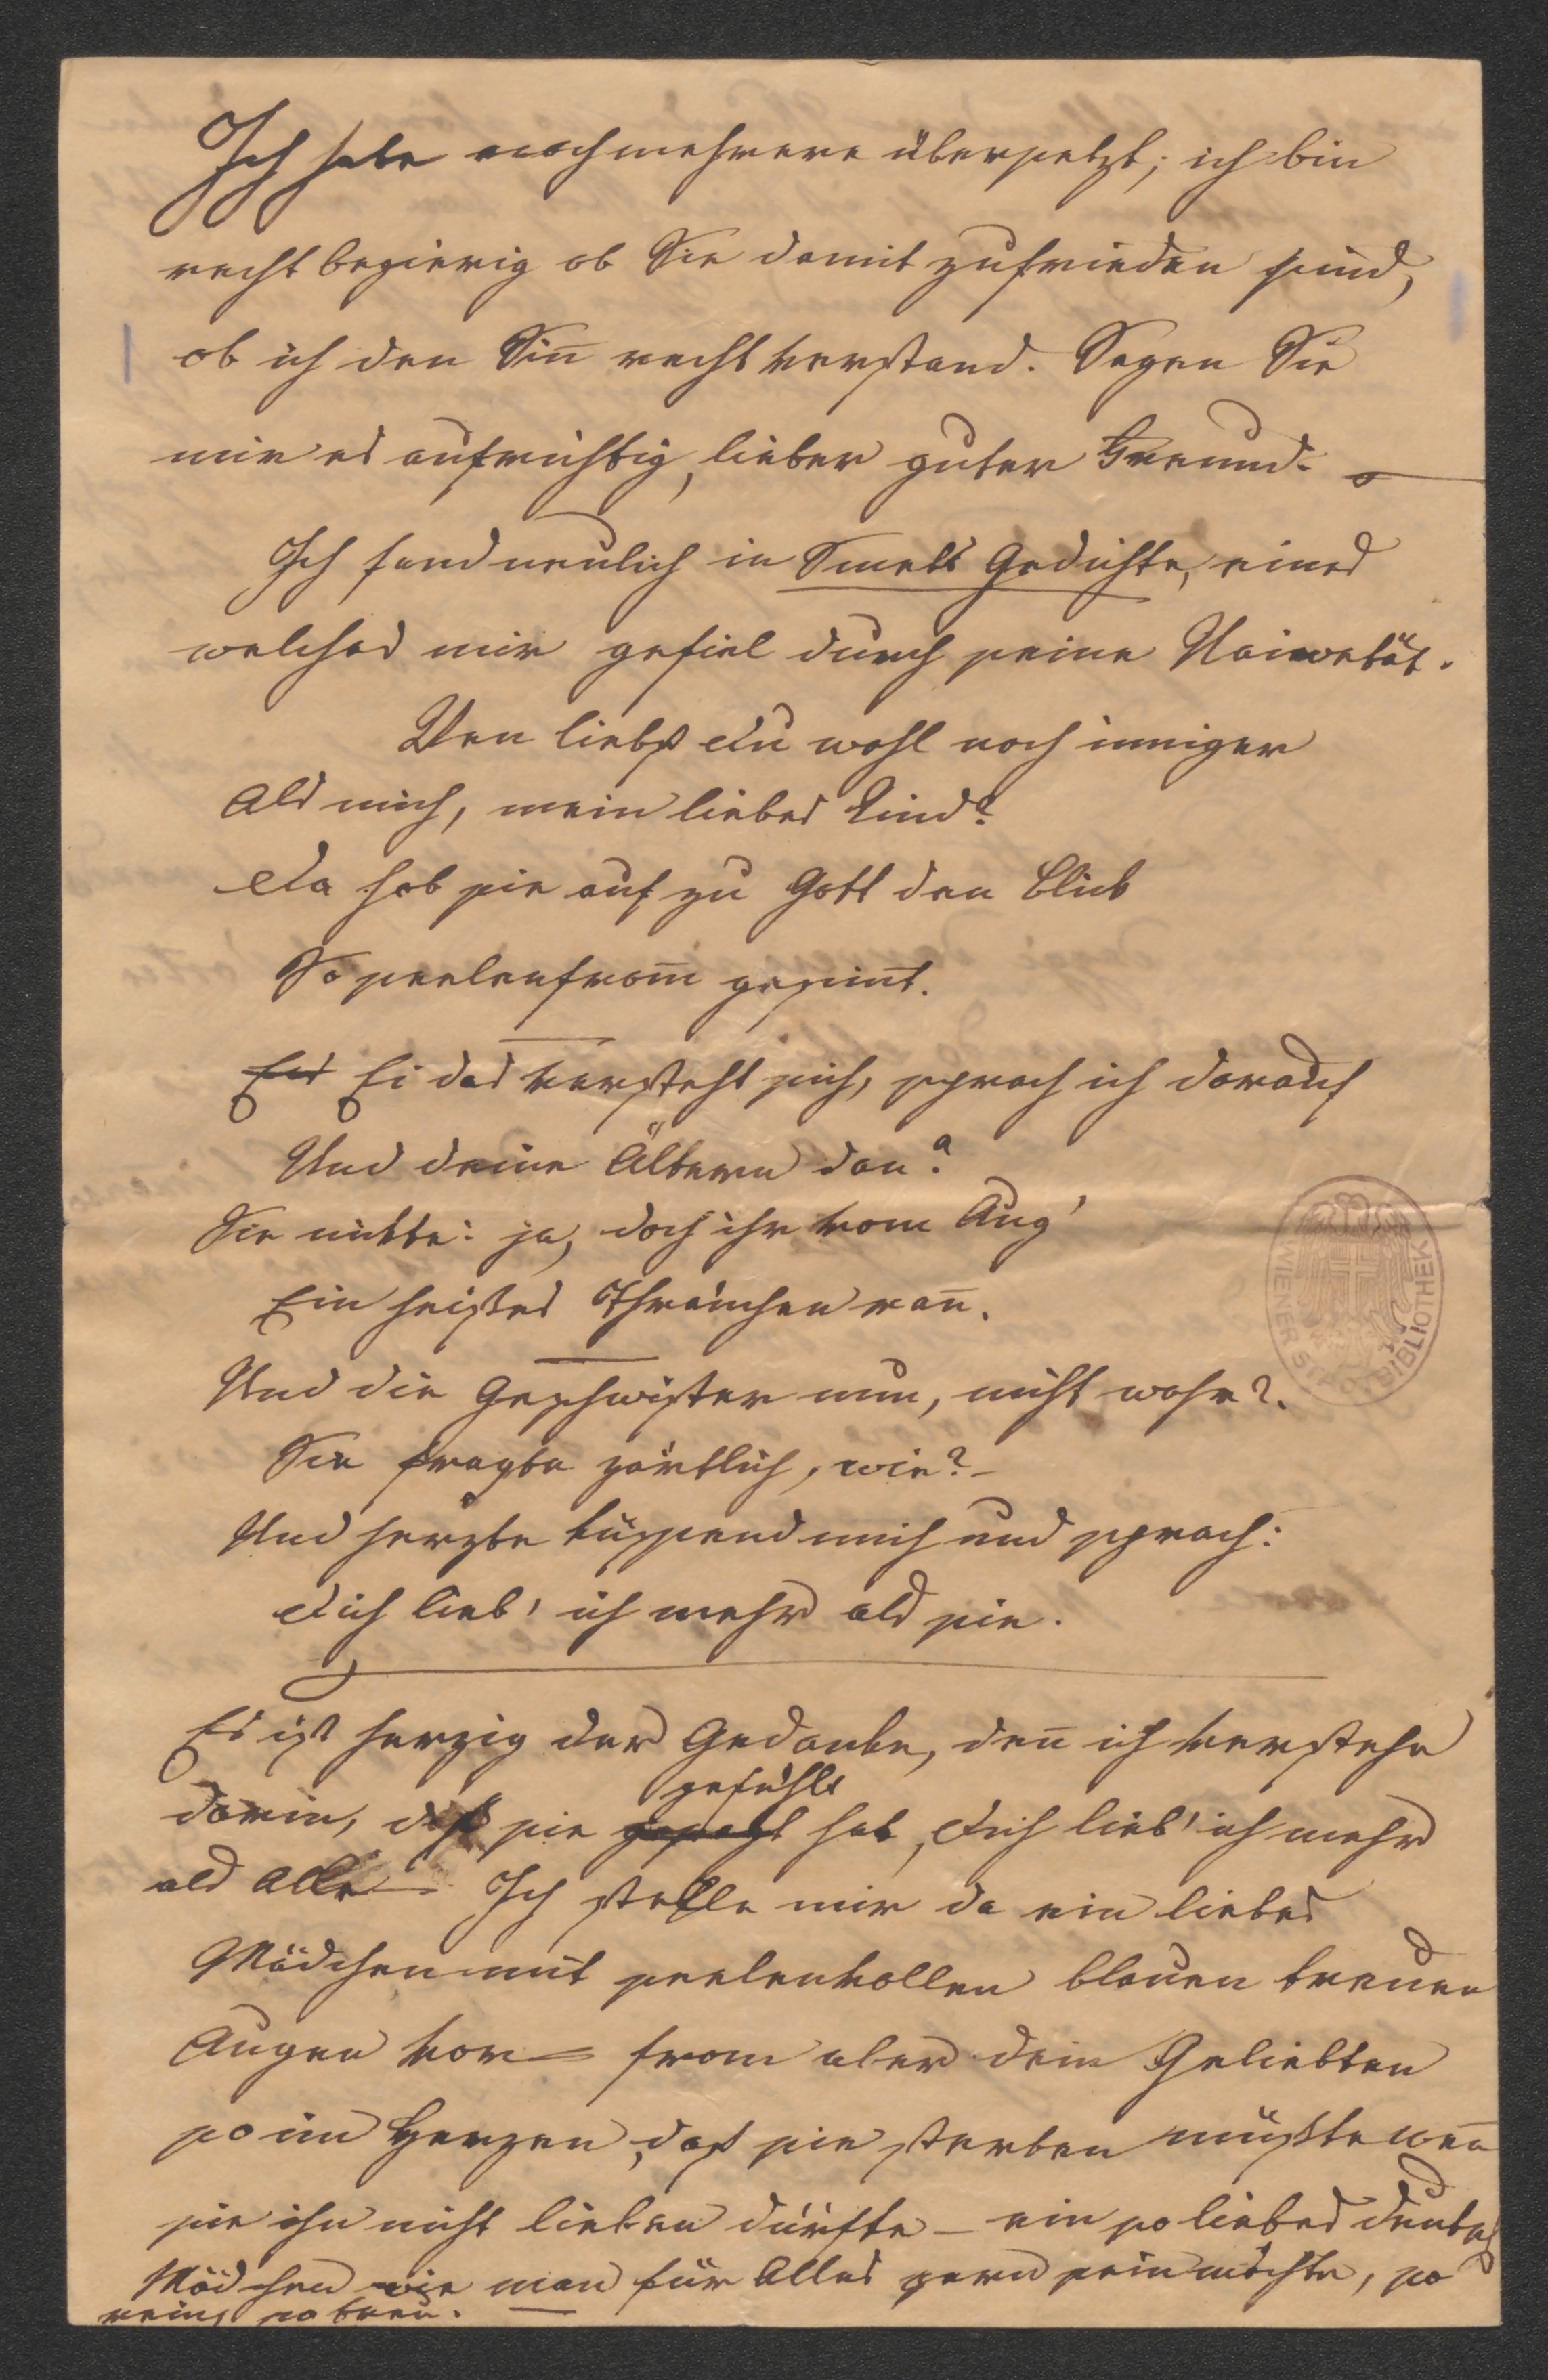 Ich habe noch mehrere übersetzt; ich bin
recht begierig ob Sie damit zufrieden sind,
ob ich den Sin̄ recht verstand. Sagen Sie
mir es aufrichtig, lieber guter Freund. —
Ich fand neulich in Smets Gedichte, eines
welches mir gefiel durch seine Naivetät.
Wen liebst du wohl noch inniger
Als mich, mein liebes Kind?
Da hob sie auf zu Gott den Blick
So seelenfrom̄ gesin̄t.
Ei das versteht sich, sprach ich darauf
Und deine Ältern dan?
Sie nickte: ja, doch ihr vom Aug'
Ein heißes Thränchen ran̄.
Und die Geschwister nun, nicht wahr?
Sie fragte zärtlich, wie? –
Und herzte küssend mich und sprach:
Dich lieb' ich mehr als sie.
Es ist herzig der Gedanke, den̄ ich verstehe
gefühlt
darin, daß sie gesagt hat, Dich lieb' ich mehr
als Alle — Ich stelle mir da ein liebes
Mädchen mit seelenvollen blauen treuen
Augen vor — from aber dem Geliebten
so im Herzen, daß sie sterben müßte wen̄
sie ihn nicht lieben dürfte — ein so liebes deutsches
Mädchen wie man für Alles gern sein möchte, so
rein, so treu. —
WIENER STADT-BIBLIOTHEK